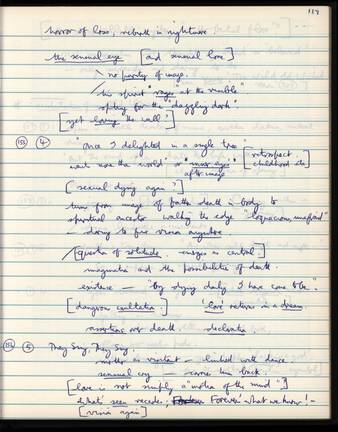 117
horror of loss, rebirth in nightmare
the sensual eye [and sensual love]
no purity of image.
his spirit "rages" at the visible
opting for the "dazzling dark"
[yet loving the wall"]
(4) "Once I delighted in a single tree
[retrospect,
childhood etc]
after image
[sexual dying again?]
turn from image of father death-in-body to
spiritual ancestor walking the edge "loquacious, unafraid"
— daring to fire
[question of solitude. emerges as central]
imagination and the possibilities of death.
existence — "by dying daily I have come to be".
[dangerous exultation] 'love' returns in a dream
assertions over death. declarative
(5) They Sing, They Sing
mother as — linked with dance.
sensual cry — comes him back.
[love is not simply a "motion of the mind"]
what's seen recedes; Forever what we know! —
[again]